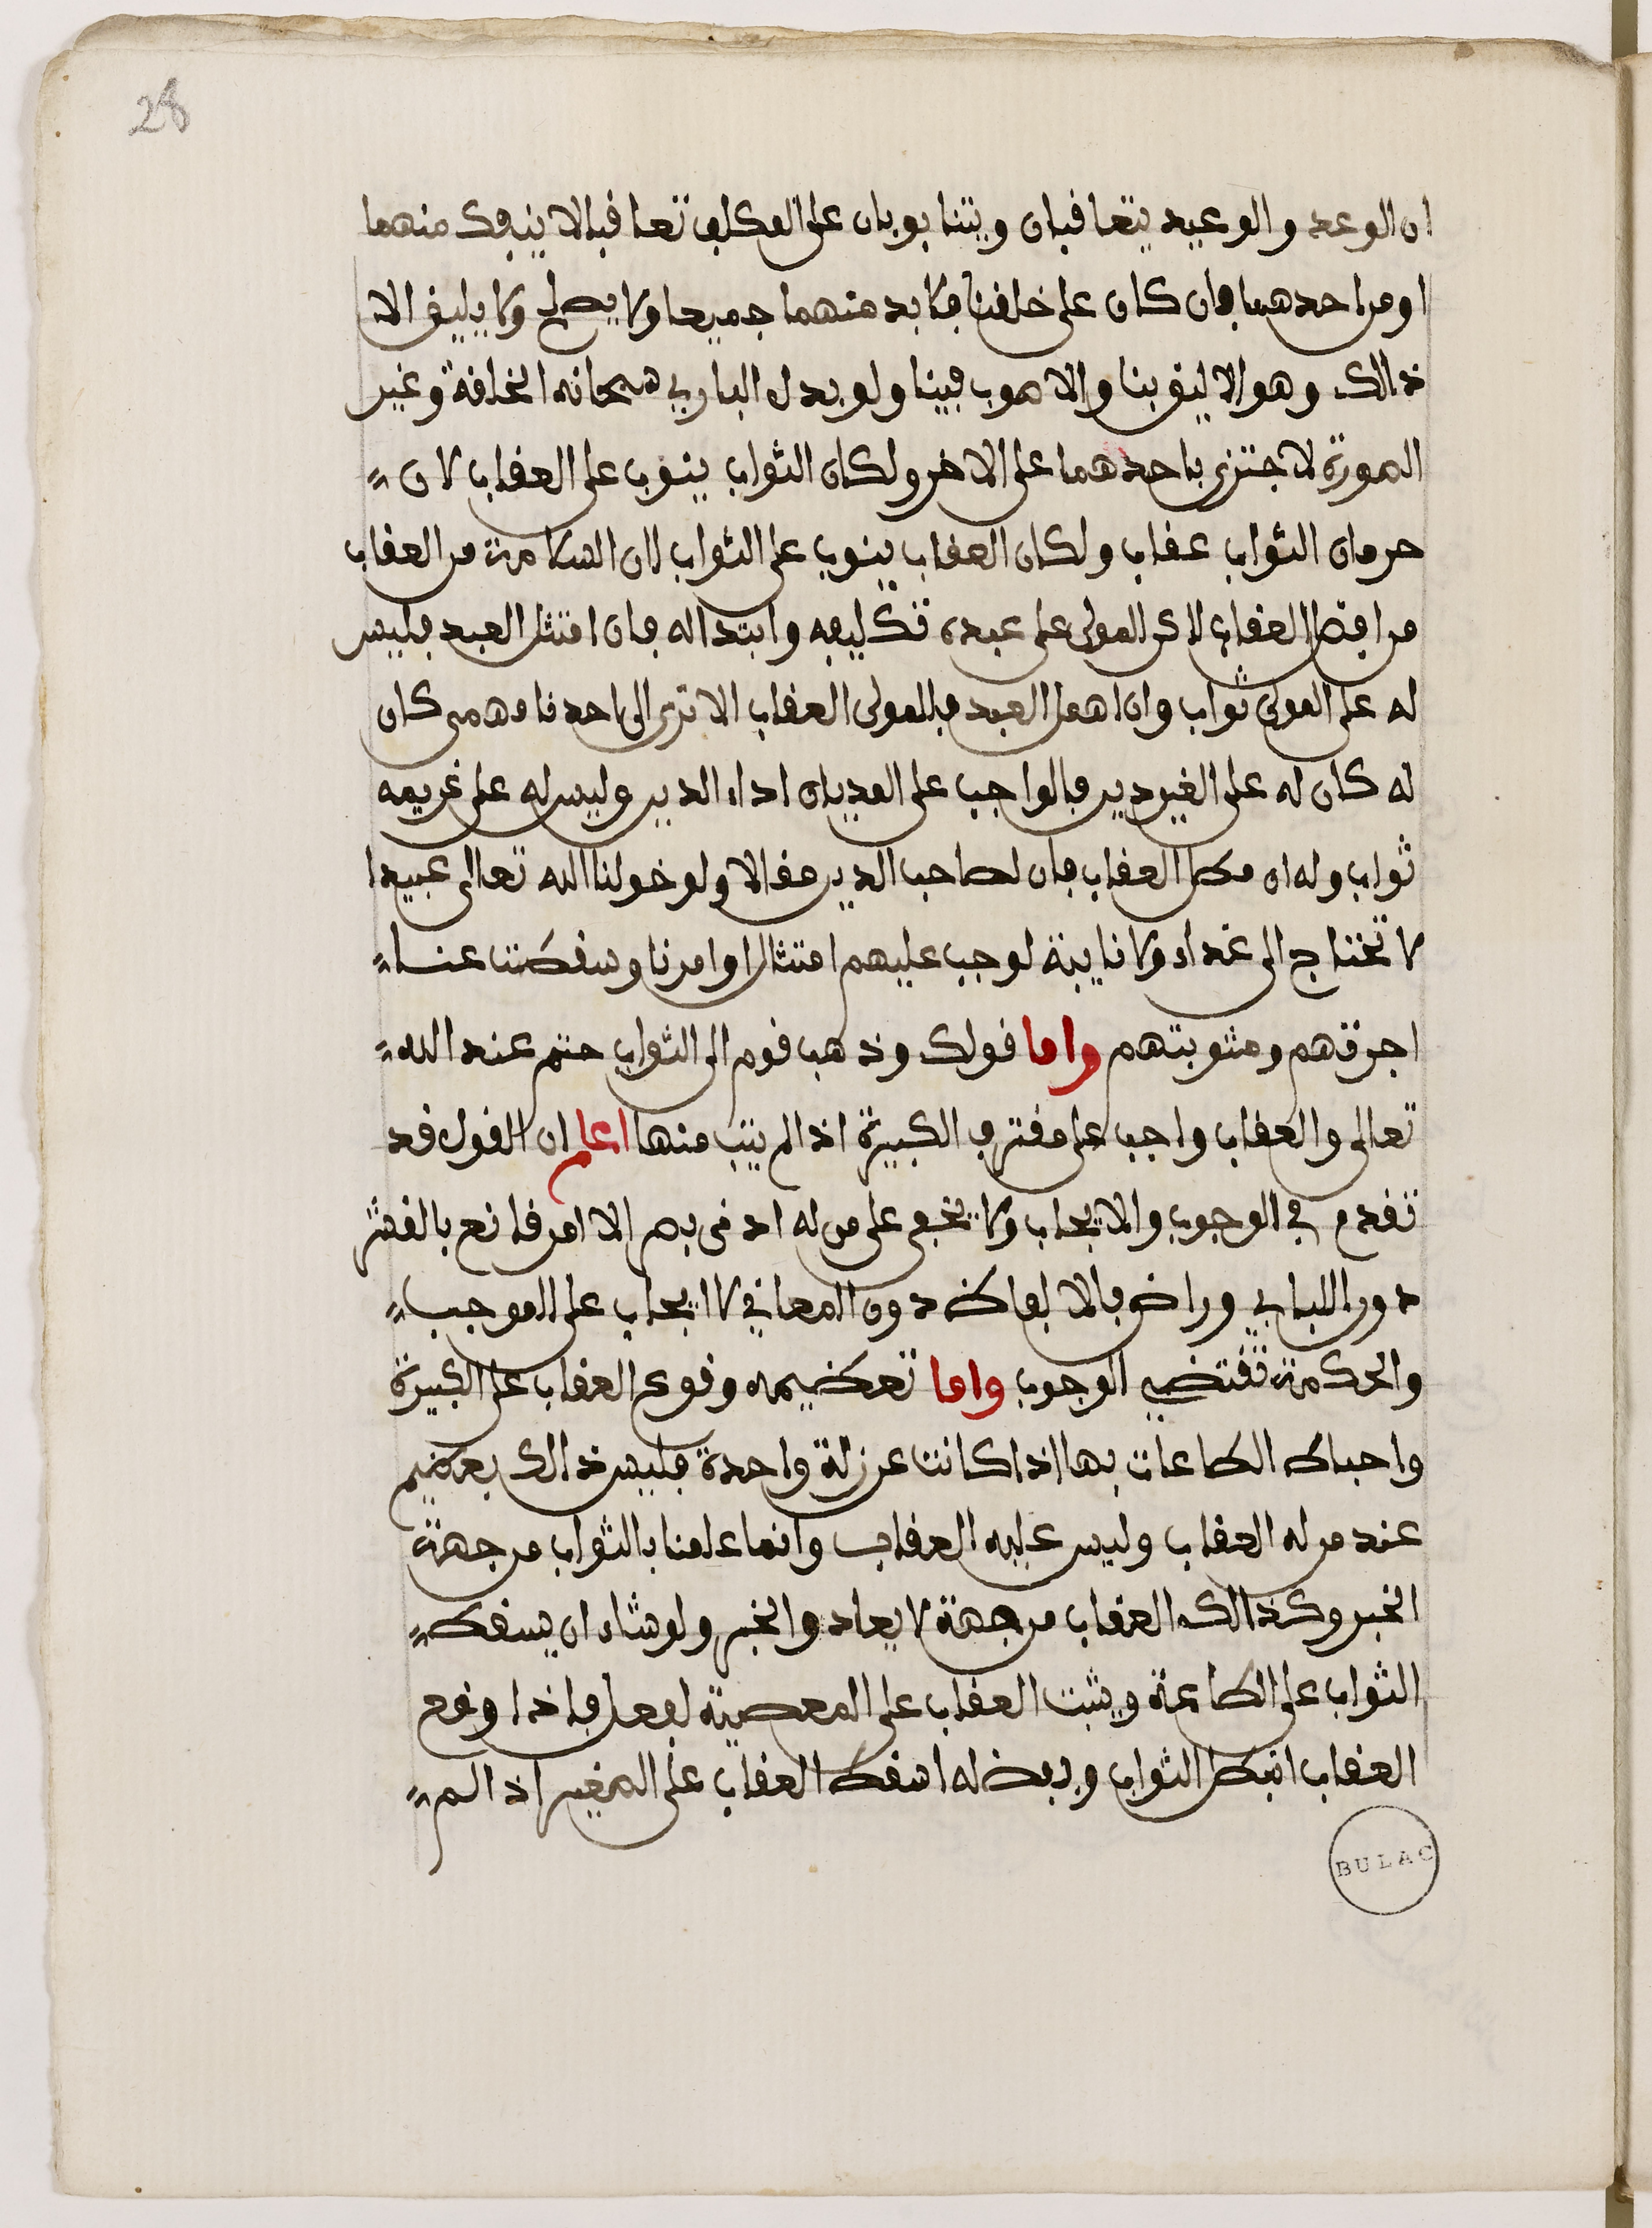 28
ان الوعد والوعيد يتعاقبان ويتناوبان على المكلف تعاقبا لا ينفك منهما
او من احدهما فان كان على خلقنا فلا بد منهما جميعا ولا يصلح ولا يليق الا
ذالك وهو الاليق بنا والاصوب فينا ولو بدل الباري سبحانه الخلقة وغير
الصورة لاجتزى باحدهما على الاخر ولكان الثواب ينوب على العقاب لان
حرمان الثواب عقاب ولكان العقاب ينوب على الثواب لان السلامة من العقاب
من افضل العقاب لاكن المولى على عبده تكليفه وابتداله فان امتثل العبد فليس
له على المولى ثواب وان اهمل العبد فللمولى العقاب الا ترى الى احدنا ومهمى كان
له كان له على الغير دين فالواجب على المديان اداء الدين وليس له على غريمه
ثواب وله ان مطل العقاب فان لصاحب الدين مقالا ولو خولنا الله تعالى عبيدا
لا تحتاج الى غداء ولا نايبة لوجب عليهم امتثال اوامرنا وسقطت عنا
اجرتهم ومثوبتهم واما قولك وذهب قوم الى الثواب حتم عند الله
تعالى والعقاب واجب على مقترف الكبيرة اذا لم يتب منها اعلم ان القول قد
تقدم في الوجوب والايجاب ولا يخفى على من له ادنى بصر الا امر قانع بالقشر
دون اللباب وراض بالالفاظ دون المعاني لا ايجاب على الموجب
والحكمة تقتضي الوجوب واما تعظيمه وقوع العقاب على الكبيرة
واحباط الطاعات بها اذا كانت عن زلة واحدة فليس ذالك بعظيم
عند من له العقاب وليس عليه العقاب وانما علمنا بالثواب من جهة
الخبر وكذالك العقاب من جهة لا يعاد والخبر ولو شاء ان يسقط
الثواب على الطاعة ويثبت العقاب على المعصية لفعل فاذا وقع
العقاب انبطل الثواب وبفضله اسقط العقاب على الصغير اذا لم
BULAC